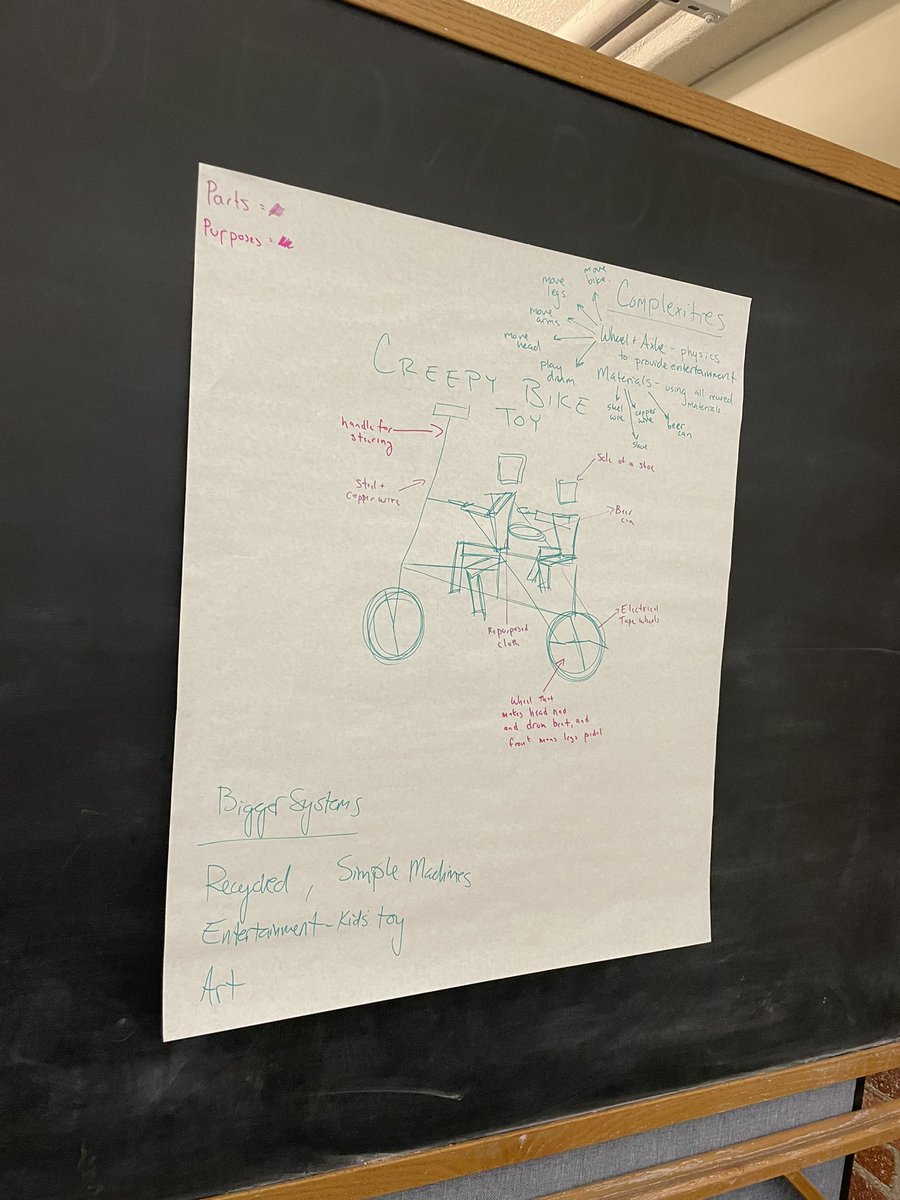 Parts =
Purposes =
Complexities
move
bike
move
legs
move
arms
move
head
play
drum
Wheel + Axle - physics
to provide entertainment
Materials - using all reused
materials.
steel
wire
copper
wire
shoe
beer
can
CREEPY BIKE
TOY
handle for
sturing
Steel +
copper wire
Sole of a shoe
Beer
can
Repurposed
cloth
Electrical
Tape wheels
Wheel That
makes head nod
and drum beat, and
front mans legs pidal
Bigger Systems
Recycled, Simple Machines
Entertainment - Kids' toy
Art